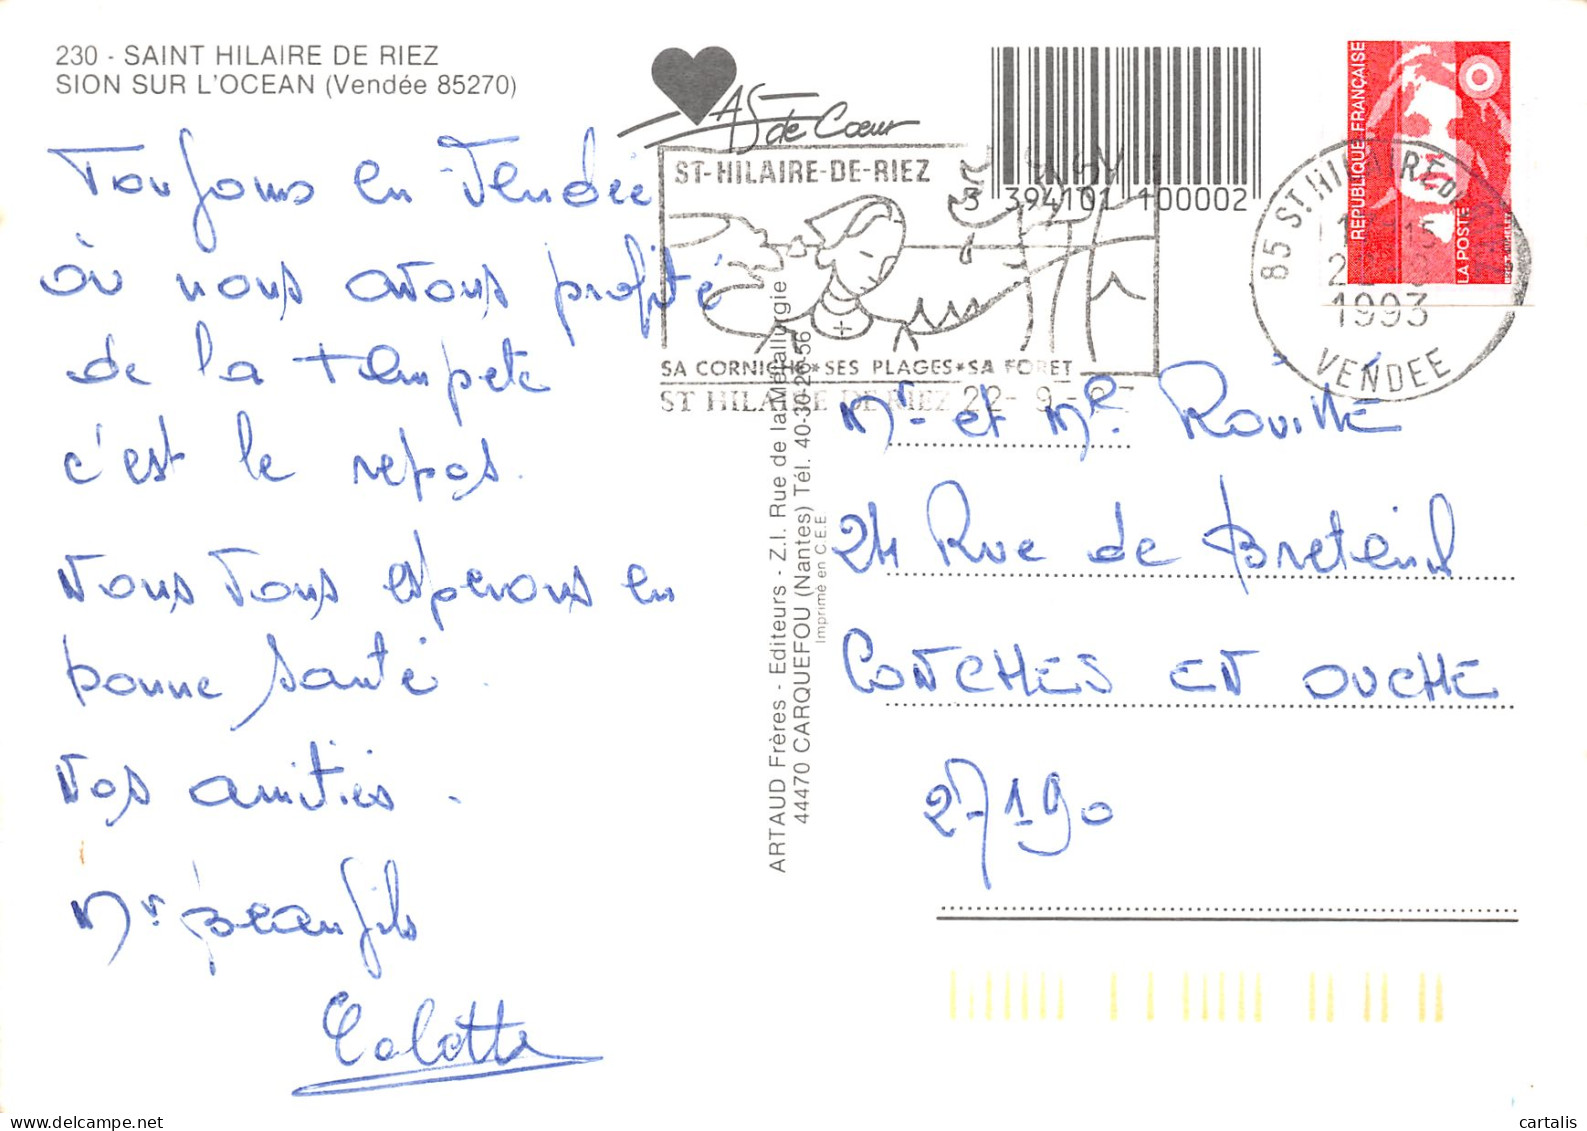 230 - SAINT HILAIRE DE RIEZ
SION SUR L'OCEAN (Vendée 85270)
Toujours en Vendée
où nous avons profité
de la tempête
c'est le repos.
Nous vous espérons en
bonne santé.
Nos amitiés.
Mr Beaufils
Colette
AS de Cœur
ST-HILAIRE-DE-RIEZ
SA CORNICHE * SES PLAGES * SA FORET
ST HILAIRE DE RIEZ 22-9-
3 394101 100002
REPUBLIQUE FRANÇAISE
LA POSTE
85 ST HILAIRE DE RIEZ
1993
VENDEE
ARTAUD Frères - Editeurs - Z.I. Rue de la Métallurgie
44470 CARQUEFOU (Nantes) Tél. 40-30-26-56
Imprimé en C.E.E
Mr et Me
24 Rue de Breteuil
CONCHES EN OUCHE
27190